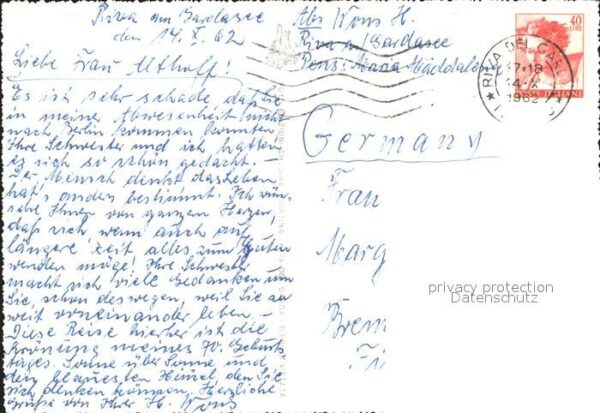 Riva am Gardasee
den 14. X. 62
Liebe Frau Uthoff!
Es ist sehr schade, daß Sie
in meiner Abwesenheit nicht
nach Berlin kommen konnten,
Ihre Schwester und ich hatten
es sich so schön gedacht. –
Der Mensch denkt das Leben
hat's anders bestimmt. Ich wün-
sche Ihnen von ganzen Herzen,
daß sich wenn auch auf
längere Zeit alles zum Guten
wenden möge! Ihre Schwester
macht sich viele Gedanken um
Sie, schon deswegen, weil Sie so
weit voneinander leben. –
Diese Reise hierher ist die
Krönung meines 70. Geburts-
tages. Sonne über Sonne und
den blauesten Himmel, den Sie
sich denken können. Herzliche
Grüße von Ihrer H. Wons
Abs. Wons H.
Riva a/ Gardasee
Pens. Anna Maddalena
40
LIRE
RIVA DEL GARDA
17-18
14-X
1962
POSTE ITALIANE
Germany
Frau
Marg
Brem
privacy protection
Datenschutz